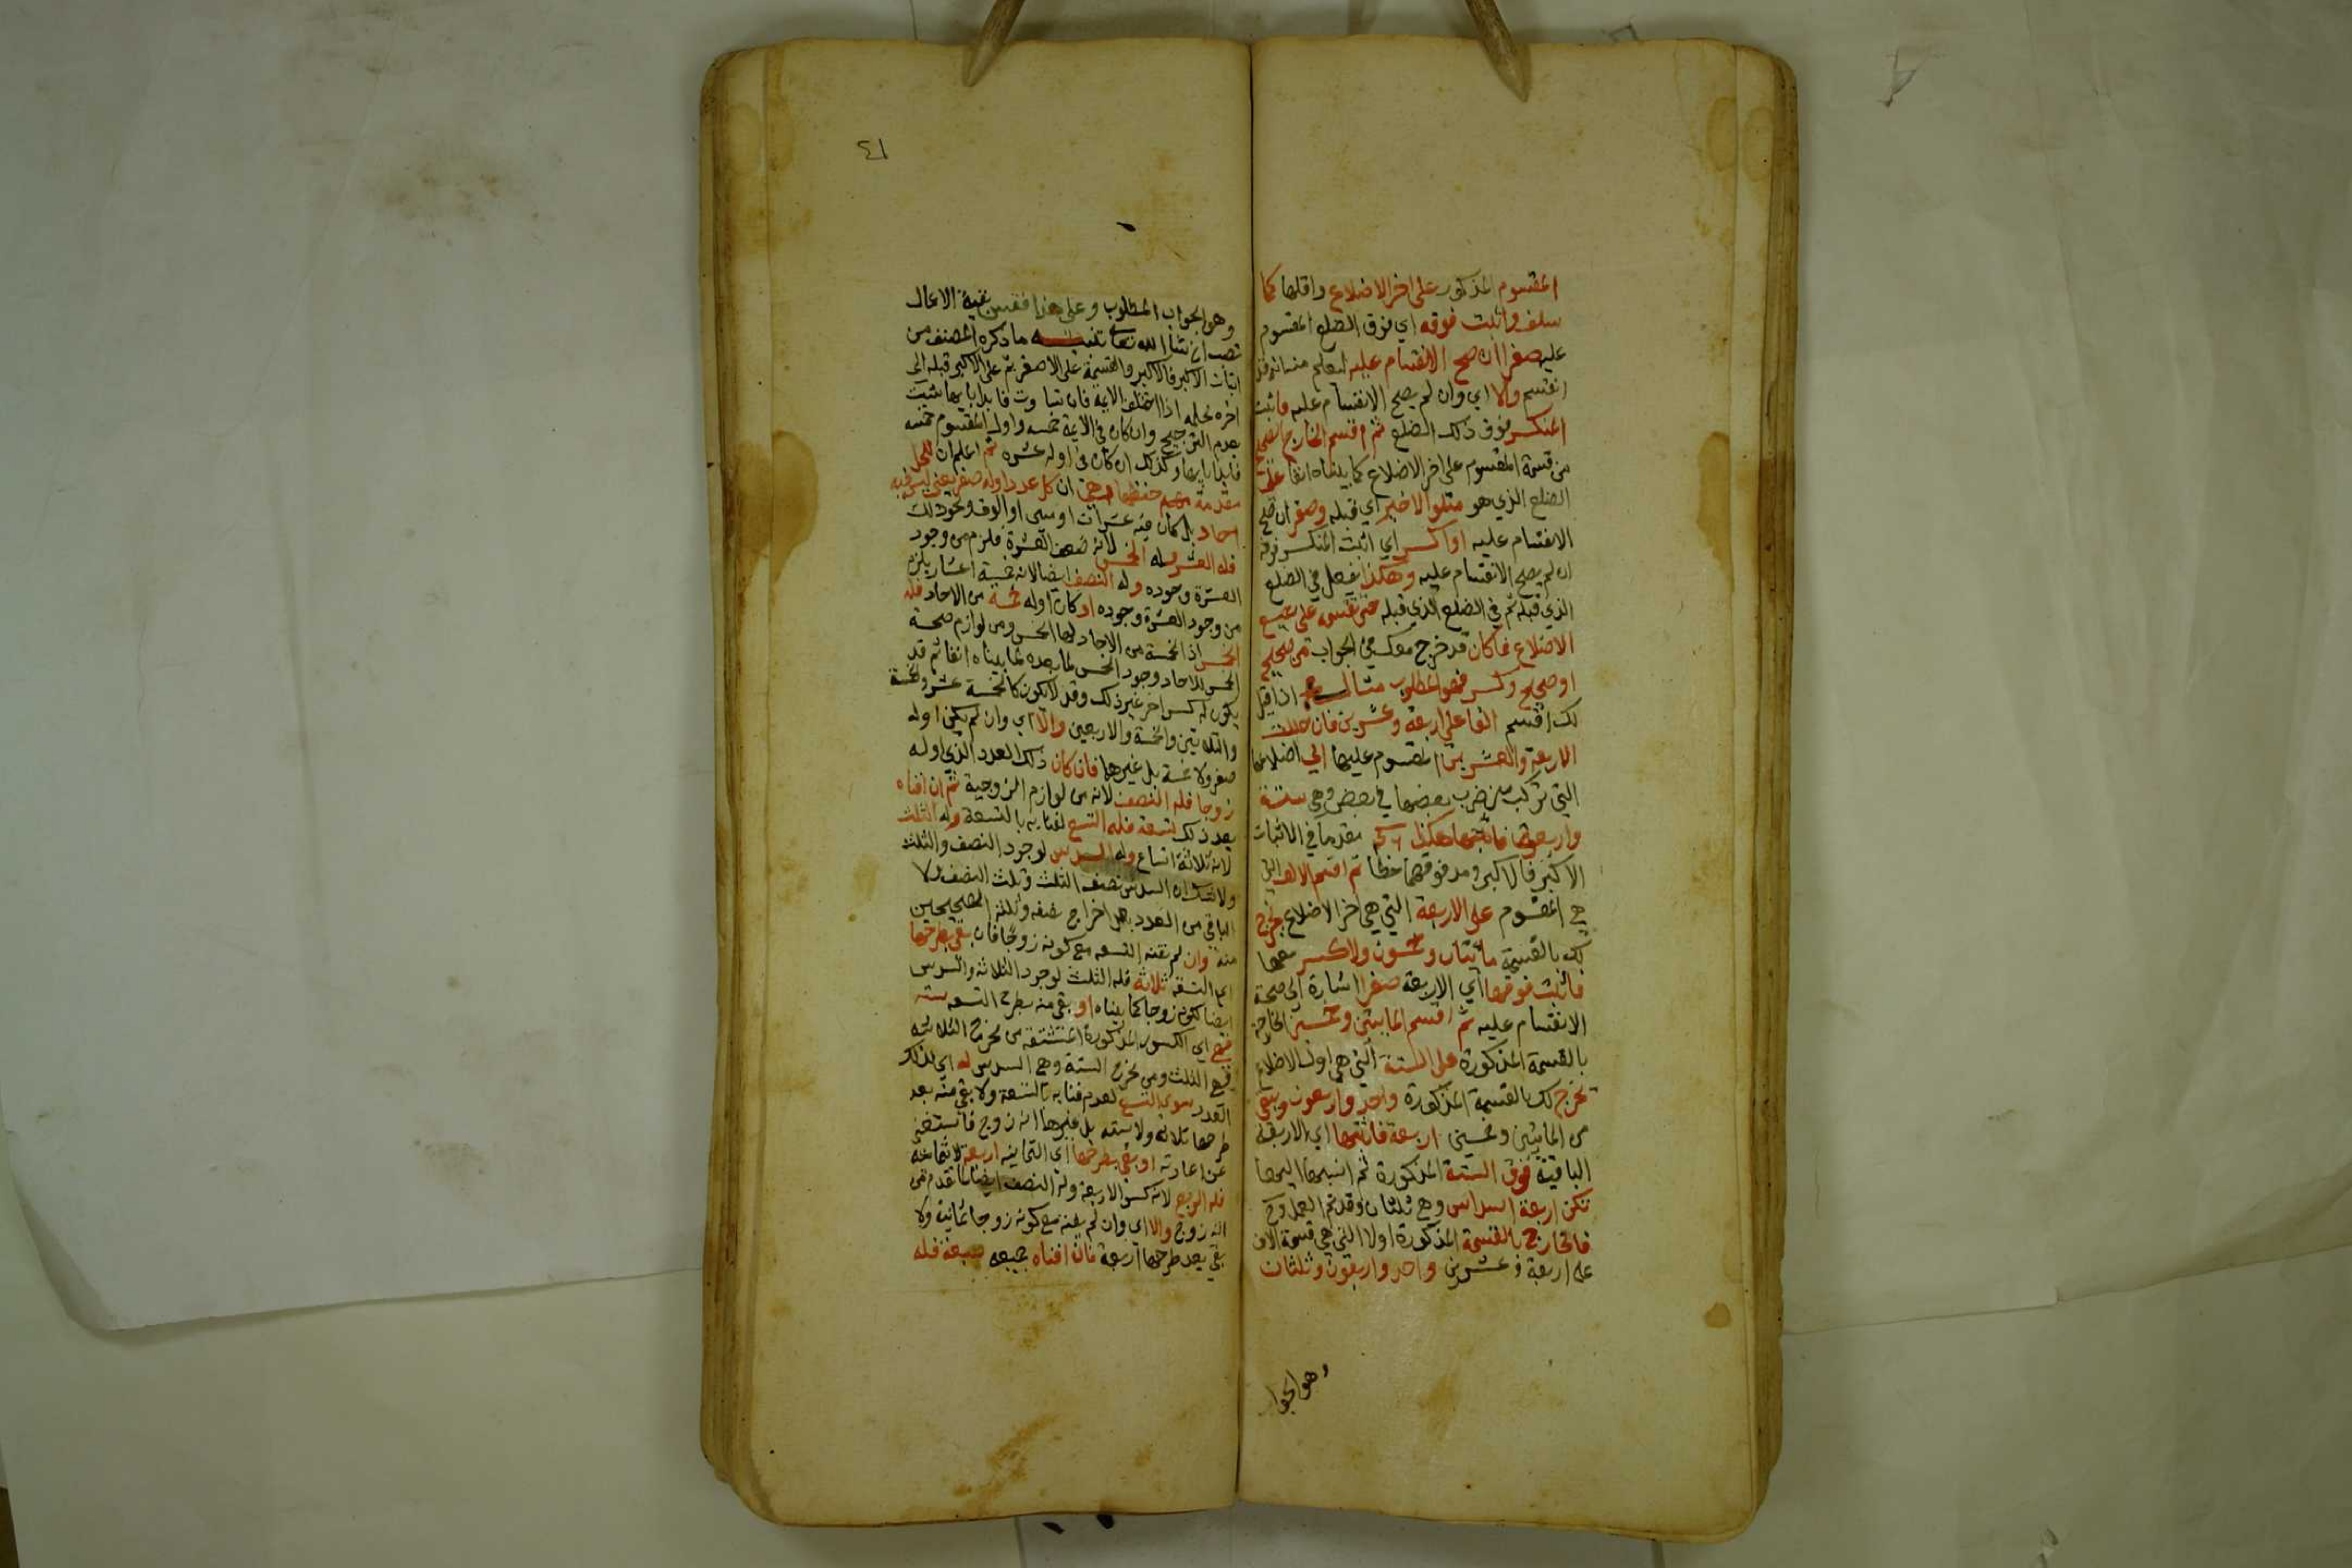 المقسوم المذكور على اخر الاضلاع واقلها كما
سلف واثبت فوقه اي فوق الضلع المقسوم
عليه صفرا ان صح الانقسام عليه ليعلم منه انه قد
انقسم والا اي وان لم يصح الانقسام عليه فاثبت
المنكسر فوق ذلك الضلع ثم اقسم الخارج الصحيح
من قسمة المقسوم على اخر الاضلاع كما بيناه انفا على
الضلع الذي هو متلو الاخير اي قبله وصفر ان صح
الانقسام عليه او اكسر اي اثبت المنكسر فوقه
ان لم يصح الانقسام عليه وهكذا يفعل في الضلع
الذي قبله ثم في الضلع الذي قبله حتى تقسمه على جميع
الاضلاع فما كان قد خرج معك في الجواب من صحيح
او صحيح وكسر فهو المطلوب مثاله اذا قيل
لك اقسم الفا على اربعة وعشرين فان حللت
الاربعة والعشرين المقسوم عليها الى اضلاعها
التي تركب من ضرب بعضها في بعض وهي ستة
واربعة فاثبتها هكذا ٦ ٤ مقدما في الاثبات
الاكبر فالاكبر ومد فوقهما خطا ثم اقسم الالف التي
هي المقسوم على الاربعة التي هي اخر الاضلاع يخرج
لك بالقسمة مائتان وخمسون ولا كسر معها
فاثبت فوقها اي الاربعة صفرا اشارة الى صحة
الانقسام عليه ثم اقسم المايتين وخمسين الخارجة
بالقسمة المذكورة على الستة التي هي اول الاضلاع
تخرج لك بالقسمة المذكورة واحد واربعون ويبقى
من المايتين وخمسين اربعة فاثبتها اي الاربعة
الباقية فوق الستة المذكورة ثم انسبها اليها
تكن اربعة اسداس وهي ثلثان وقد تم العمل وح
فالخارج بالقسمة المذكورة اولا التي هي قسمة الالف
على اربعة وعشرين واحد واربعون وثلثان
وهو الجوا
٤١
وهو الجواب المطلوب وعلى هذا فقس بقية الاعمال
تصب ان شا الله تعالى تنبيه ما ذكره المصنف من
اثبات الاكبر فالاكبر والقسمة على الاصغر ثم على الاكبر قبله الى
اخره محله اذا اختلف الايمة فان تساوت فابدا بايها شيت
لعدم الترجيح وان كان في الايمة خمسه واول المقسوم خمسه
فابدا بها وكذلك ان كان في اوله عشره ثم اعلم ان للحل
مقدمة حفظها وهي ان كل عدد اوله صفر يعني ليس فيه
احاد بل كان فيه عشرات او ميين او الوف ونحو ذلك
فله العشر وله الخمس لانه ضعف العشر فلزم من وجود
العشرة وجوده وله النصف ايضا لانه خمسة اعشار يلزم
من وجود العشرة وجوده او كان اوله خمسة من الاحاد فله
الخمس اذ الخمسة من الاحاد لها الخمس ومن لوازم صحة
الخمس للاحاد وجود الخمس لما بعده لما بيناه انفا ثم قد
يكون له كسر اخر غير ذلك وقد لا يكون كالخمسة عشر والخمسة
والثلاثين والخمسة والاربعين والا اي وان لم يكن اوله
صفر ولا خمسة بل غيرهما فان كان ذلك العدد الذي اوله
زوجا فله النصف لانه من لوازم الزوجية ثم ان افناه
بعد ذلك تسعة فله التسع لفنايه بالتسعة وله الثلث
لانه ثلاثة اتساع وله السدس لوجود النصف والثلث
ولا شك ان السدس نصف الثلث وثلث النصف ولا
الباقي من العدد بعد اخراج نصفه وثلثه الصحيحين
منه وان لم تفنه التسعه مع كونه زوجا فان بقي بطرحها
اي التسعة ثلاثة فله الثلث لوجود الثلاثة والسدس
ايضا لكونه زوجا كما بيناه او بقي منه بطرح التسعه سته
فهي اي الكسور المذكورة المشتقة من مخرج الثلاثه
وهي الثلث ومن مخرج الستة وهي السدس له اي لذلك
العدد سوى التسع لعدم فنايه بالتسعة ولا بقي منه بعد
طرحها ثلاثه ولا سته بل غيرها انه زوج فاستغنى
عن اعادته او بقي بطرحها اي الثمانيه اربعة لا ثمانية
فله الربع لانه كسر الاربعة وله النصف ايضا لما تقدم من
انه زوج والا اي وان لم يفنه مع كونه زوجا ثمانية ولا
بقي بعد طرحها اربعة فان افناه جميعه سبعة فله